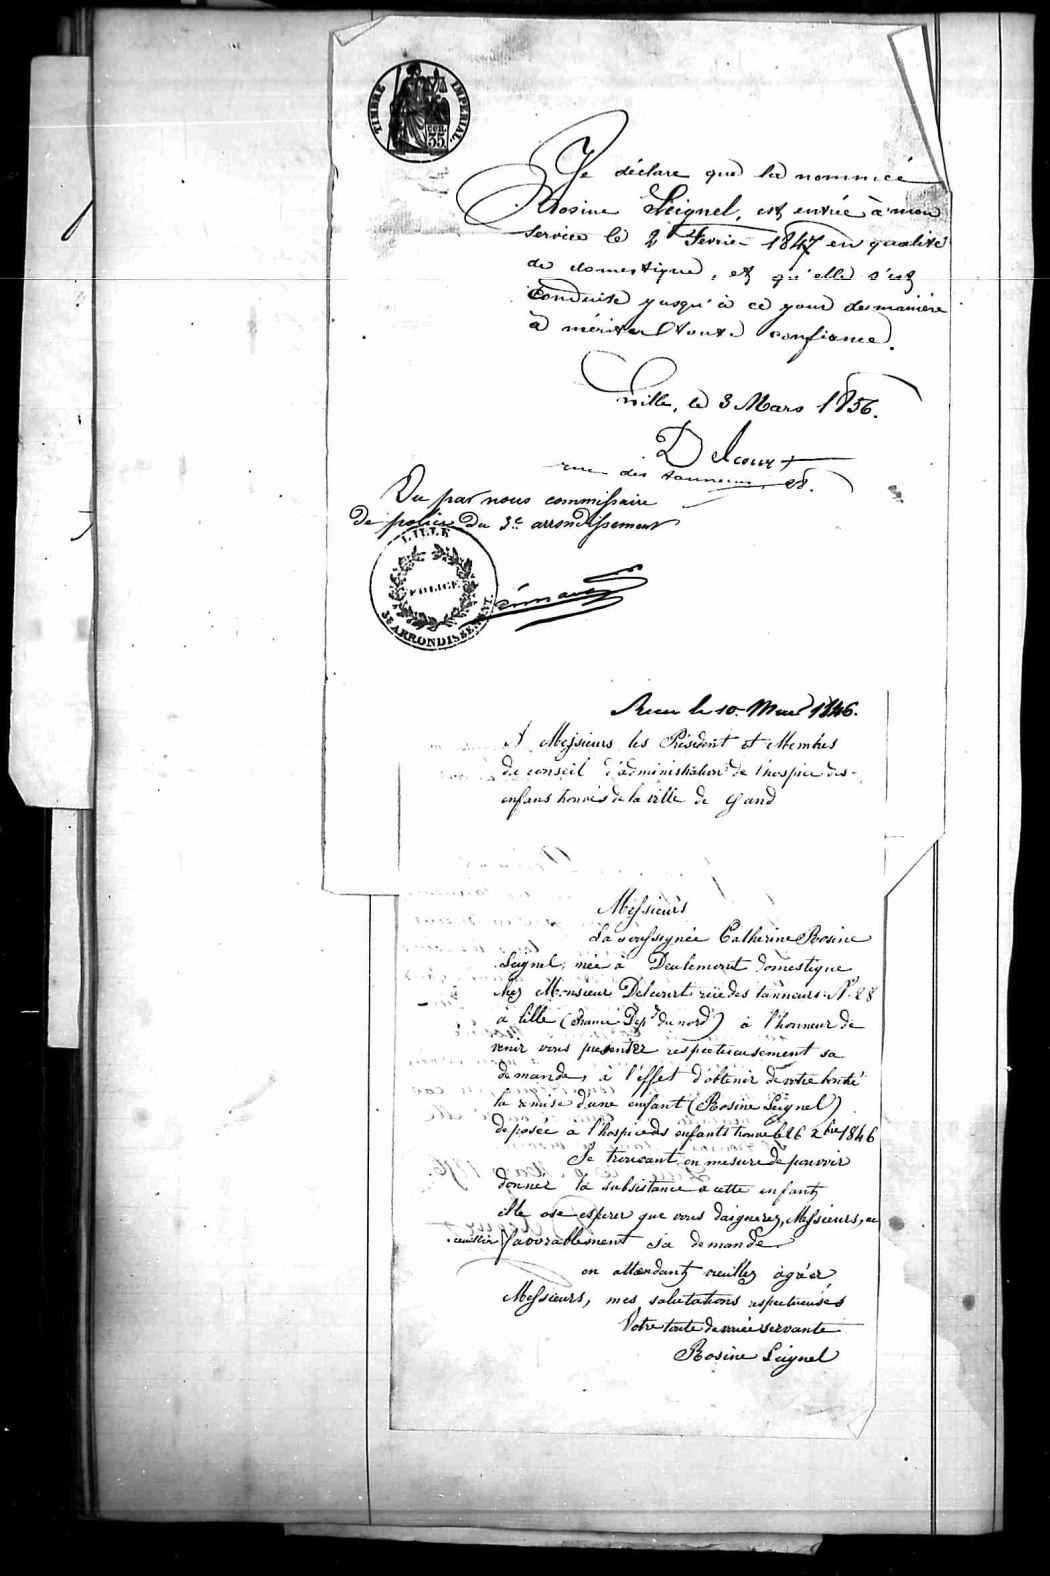 TIMBRE IMPERIAL
35
Je déclare que la nommée
Rosine Seignel, est entrée à mon
service le 2 Fevrier 1847 en qualité
de domestique, et qu'elle s'est
Conduise jusqu'à ce jour de manière
à mériter toute confiance.
Lille, le 3 Mars 1856.
Delcourt
rue des tanneurs 28.
Vu par nous commissaire
de police du 3e arrondissement
LILLE
POLICE
3E ARRONDISSEMENT.
le 10 Mars
A Messieurs les Président et Membres
du conseil d'administration de l'hospice des
enfans trouvés de la ville de Gand
Messieurs
La soussignée Catherine Rosine
Seignel, née à Deulemont domestique
chez Monsieur Delcourt rue des tanneurs No 28
à lille (france Dept du nord) à l'honneur de
venir vous presenter respectueusement sa
demande, à l'effet d'obtenir de votre bonté
la remise d'une enfant (Rosine Seignel)
deposée à l'hospice des enfants trouvé le 26 1846
Se trouvant en mesure de pouvoir
donner la subsistance a cette enfant
elle ose esperer que vous daignerez, Messieurs,
favorablement sa demande.
en attendant veuillez agréer
Messieurs, mes salutations respectueuses
Votre toute devouée servante
Rosine Seignel